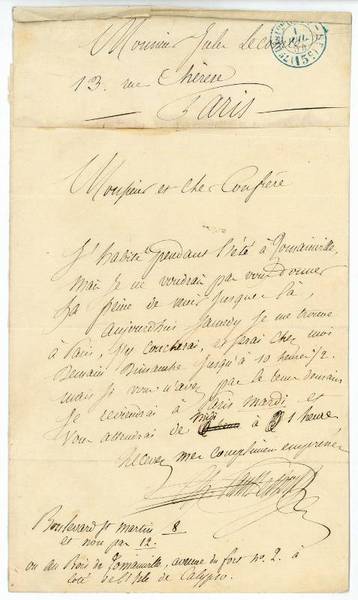 Monsieur Jules Lecomte
13. rue Thérèse
Paris
Monsieur et cher Confrère
J'habite pendant l'été à Romainville,
mais je ne voudrais pas vous donner
la peine de venir jusque là,
aujourdhui Samedy je me trouve
à Paris, j'y coucherai, et serai chez moi
Demain Dimanche jusqu'à 10 heures 1/2
mais si vous n'avez pas le tems demain
je reviendrai à Paris mardi, et
vous attendrai de midi à 1 heure
Recevez mes complimens empressés
Boulevard St martin 8
et non pas 12.
ou au Bois de Romainville, avenue du fort no. 2. à
coté de l'Ile de Calypso.